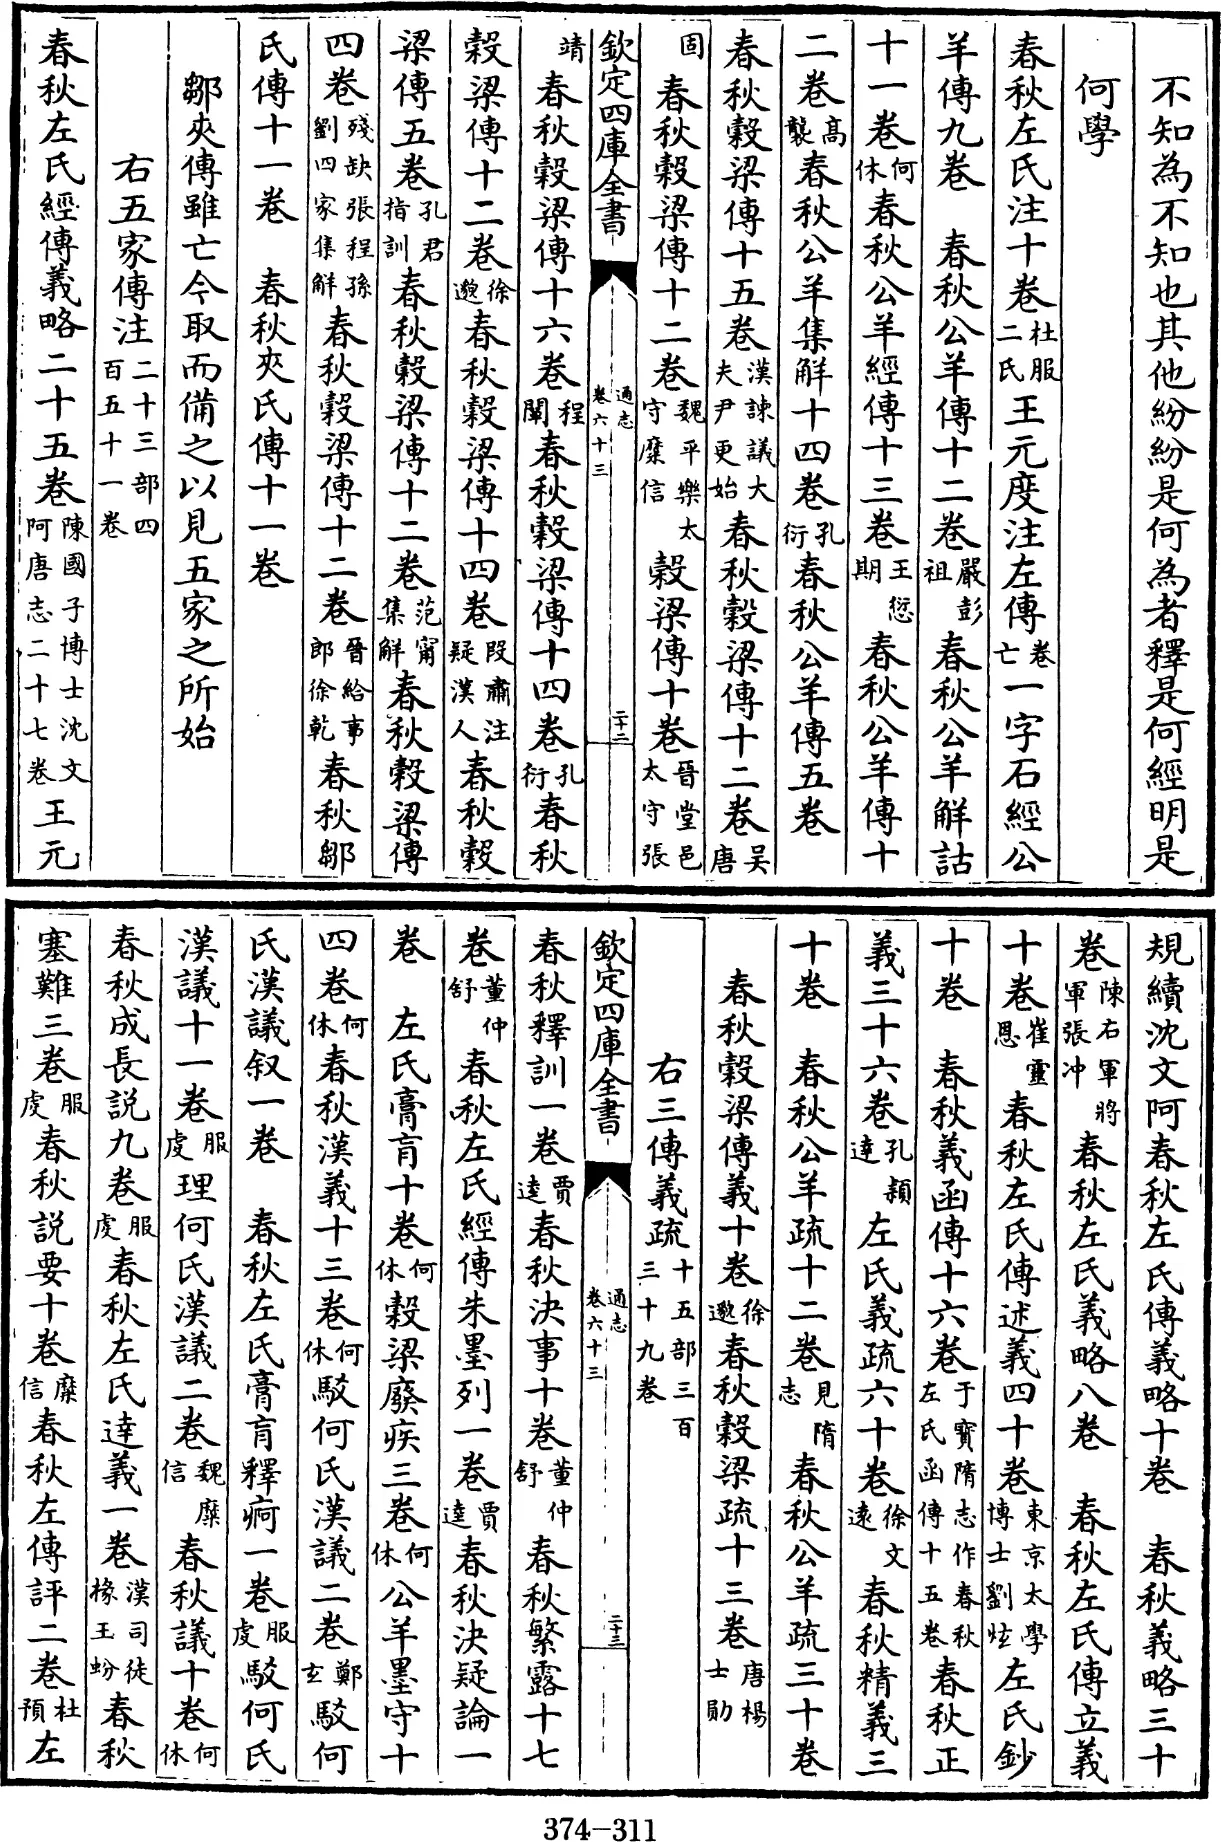 不知為不知也其他紛紛是何為者釋是何經明是
何學
春秋左氏注十卷杜服二氏王元度注左傳卷亡一字石經公
羊傳九卷 春秋公羊傳十二卷嚴彭祖春秋公羊解詁
十一卷何休春秋公羊經傳十三卷王愆期春秋公羊傳十
二卷高襲春秋公羊集解十四卷孔衍春秋公羊傳五卷
春秋穀梁傳十五卷漢諫議大夫尹更始春秋穀梁傳十二卷吳唐
固春秋穀梁傳十二卷魏平樂太守糜信穀梁傳十卷晉堂邑太守張
欽定四庫全書 通志卷六十三 二十二
靖春秋穀梁傳十六卷程闡春秋穀梁傳十四卷孔衍春秋
穀梁傳十二卷徐邈春秋穀梁傳十四卷段肅注疑漢人春秋穀
梁傳五卷孔君指訓春秋穀梁傳十二卷范甯集解春秋穀梁傳
四卷殘缺張程孫劉四家集解春秋穀梁傳十二卷晉給事郎徐乾春秋鄒
氏傳十一卷 春秋夾氏傳十一卷
鄒夾傳雖亡今取而備之以見五家之所始
右五家傳注二十三部四百五十一卷
春秋左氏經傳義略二十五卷陳國子博士沈文阿唐志二十七卷王元
規續沈文阿春秋左氏傳義略十卷 春秋義略三十
卷陳右軍將軍張冲春秋左氏義略八卷 春秋左氏傳立義
十卷崔靈恩春秋左氏傳述義四十卷東京太學博士劉炫左氏鈔
十卷 春秋義函傳十六卷于寳隋志作春秋左氏函傳十五卷春秋正
義三十六卷孔穎達左氏義疏六十卷徐文遠春秋精義三
十卷 春秋公羊疏十二卷見隋志春秋公羊疏三十卷
春秋穀梁傳義十卷徐邈春秋穀梁疏十三卷唐楊士勛
右三傳義疏十五部三百三十九卷
欽定四庫全書 通志卷六十三 二十三
春秋釋訓一卷賈逵春秋決事十卷董仲舒春秋繁露十七
卷董仲舒春秋左氏經傳朱墨列一卷賈逵春秋決疑論一
卷 左氏膏肓十卷何休穀梁廢疾三卷何休公羊墨守十
四卷何休春秋漢義十三卷何休駁何氏漢議二卷鄭玄駁何
氏漢議叙一卷 春秋左氏膏肓釋痾一卷服虔駁何氏
漢議十一卷服虔理何氏漢議二卷魏糜信春秋議十卷何休
春秋成長説九卷服虔春秋左氏達義一卷漢司徒掾王玢春秋
塞難三卷服虔春秋説要十卷糜信春秋左傳評二卷杜預左
374-311